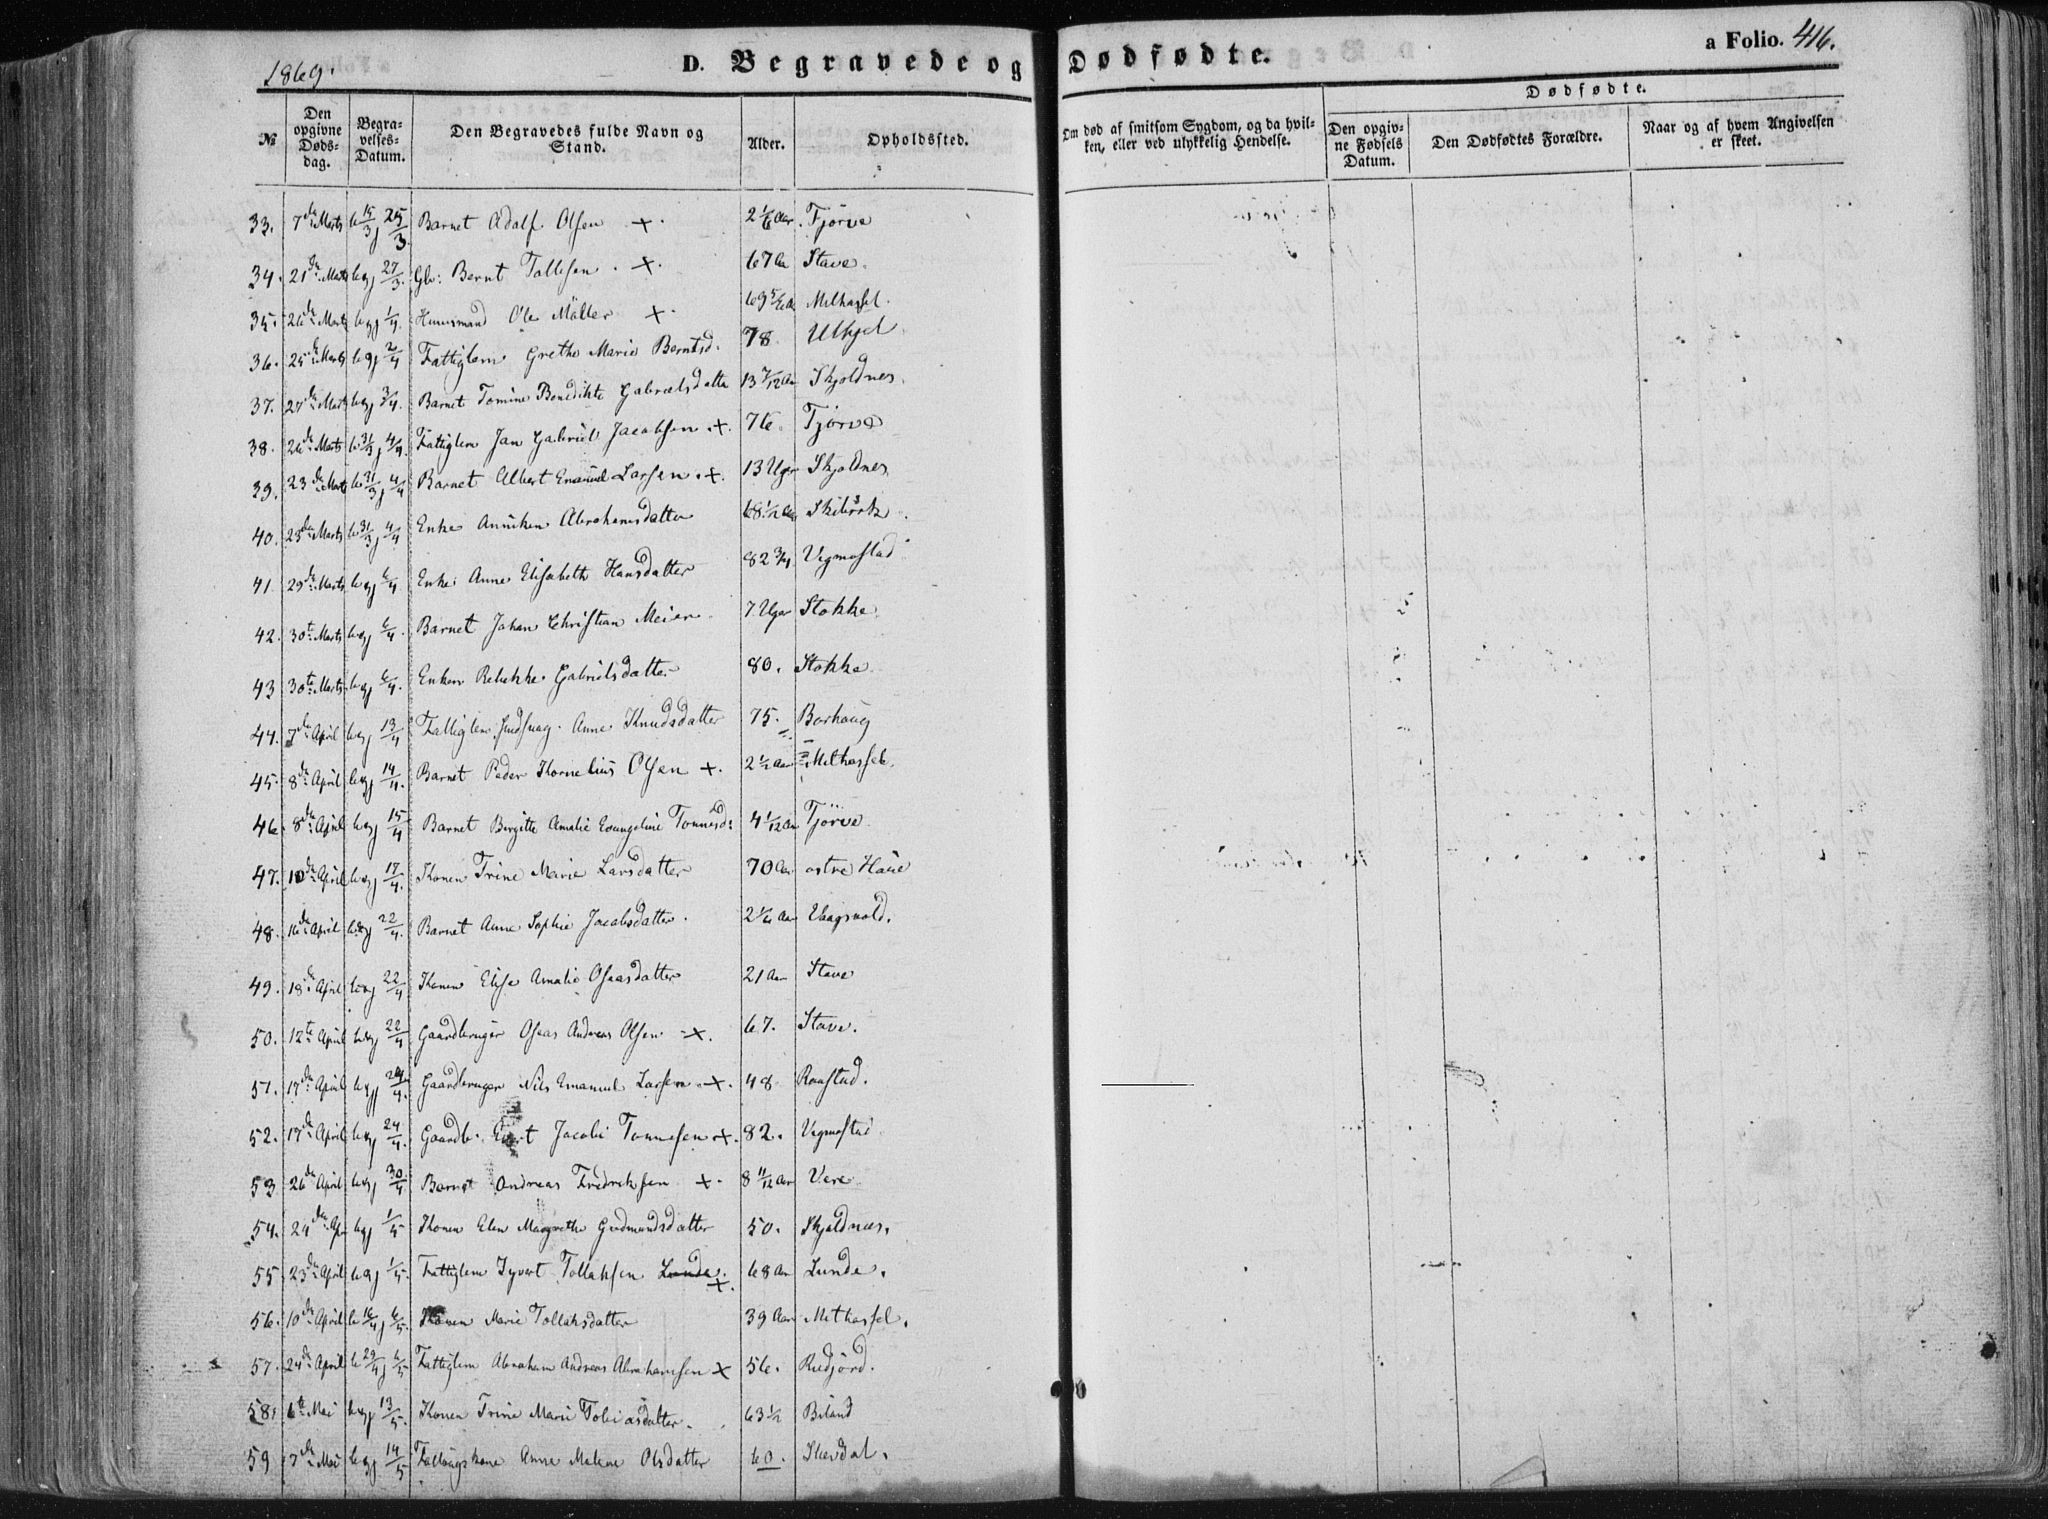 1869.
D. Begravede og Dødfødte.
a Folio. 416.
№ | Den opgivne Døds-dag. | Begra-velses-Datum. | Den Begravedes fulde Navn og Stand. | Alder. | Opholdssted. | Om død af smitsom Sygdom, og da hvil-ken, eller ved ulykkelig Hendelse. | Dødfødte. | Den opgiv-ne Fødsels Datum. | Den Dødfødtes Forældre. | Naar og af hvem Angivelsen er skeet.
33. 7de Marts b 15/3 j 25/3 Barnet Adolf Olsen + 2 1/6 Aar Tjørve
34. 21de Marts b og j 27/3. Gbr: Bernt Tallesen + 67 Aar Stave.
35. 26de Marts b og j 1/4. Huusmand Ole Møller + 69 5/6 Aar Methassel.
36. 25de Marts b og j 2/4 Fattiglem Grethe Marie Berntsd. 78
37. 27de Marts b og j 3/4. Barnet Tomine Benedikte Gabrielsdatter 13 7/12 Aar Skjoldnes.
38. 26de Marts b 31/3 j 4/4. Fattiglem Jan Gabriel Jacobsen + 76. Tjørve
39. 23de Marts b 31/3 j 4/4 Barnet Albert Emanuel Larsen + 13 Uger Skjoldnes
40. 23de Marts b 31/3 j 4/4 Enke Anniken Abrahamsdatter 68 1/2 Aar
41. 29de Marts b og j 6/4. Enke Anne Elisabeth Hansdatter 82 3/4 Vegmostad
42. 30te Marts b og j 6/4. Barnet Johan Christian Meier 7 Uger Stokke
43 30te Marts b og j 6/4. Enken Rebekke Gabrielsdatter 80. Stokke
44. 7de April b og j 13/4 Fattiglem Anne Knudsdatter 75. Borhaug
45. 8de April b og j 14/4. Barnet Peder Kornelius Olsen + 2 1/2 Aar Methassel.
46. 8de April b og j 15/4 Barnet Birgitte Amalie Evangeline Tønnesd: 4 1/12 Aar Tjørve
47. 10de April b og j 17/4. Konen Trine Marie Larsdatter 70 Aar østre Haue
48. 16de April b og j 22/4. Barnet Anne Sophie Jacobsdatter. 2 1/4 Aar Vaagsvold.
49. 18de April b og j 22/4 Konen Elise Amalie Oseasdatter 21 Aar Stave
50. 12te April b og j 22/4 Gaardbruger Oseas Andreas Olsen + 67. Stave.
51. 17de April b og j 24/4. Gaardbruger Nils Emanuel Larsen + 48 Raustad.
52. 17de April b og j 24/4. Gaardb. Jacob Tønnesen + 82. Vegmostad
53 26de April b og j 30/4 Barnet Andreas Fredriksen + 8 11/12 Aar Vere
54. 24de Apr b og j 1/5 Konen Elen Margrethe Gudmundsdatter 50. Skjoldnæs.
55 23de April b og j 1/5. Fattiglem Syvert Tollaksen Lunda. + 68 Aar Lunde.
56. 10de April b 16/4 j 6/5. Konen Marie Tollaksdatter 39 Aar Methassel.
57. 24de April b 29/4 j 6/5 Fattiglem Abraham Andreas Abrahamsen + 56. Rudjord.
58. 6te Mai b og j 13/5. Konen Trine Marie Tobiasdatter. 63 1/2 Biland
59 7de Mai b og j 14/5 Anne Malene Olsdatter 60.